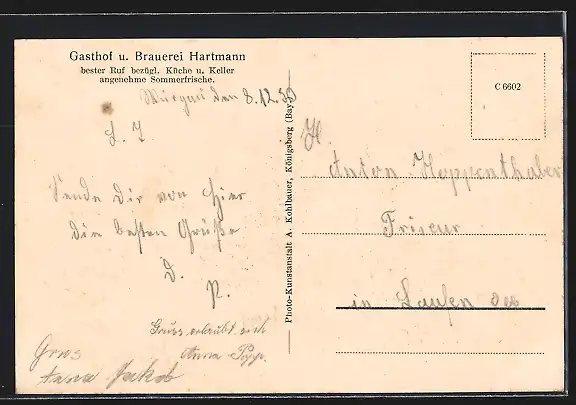 Gasthof u. Brauerei Hartmann
bester Ruf bezügl. Küche u. Keller
angenehme Sommerfrische.
Würgau den 8.12.30
L. J.
Sende Dir von Hier
die besten Grüße
D.
P.
Gruss erlaubt sich
Anna Popp
Grus
Anna Jakob
Photo-Kunstanstalt A. Kohlbauer, Königsberg (Bay.)
C 6602
H.
Anton Hoppenthaler
Friseur
in Laufen